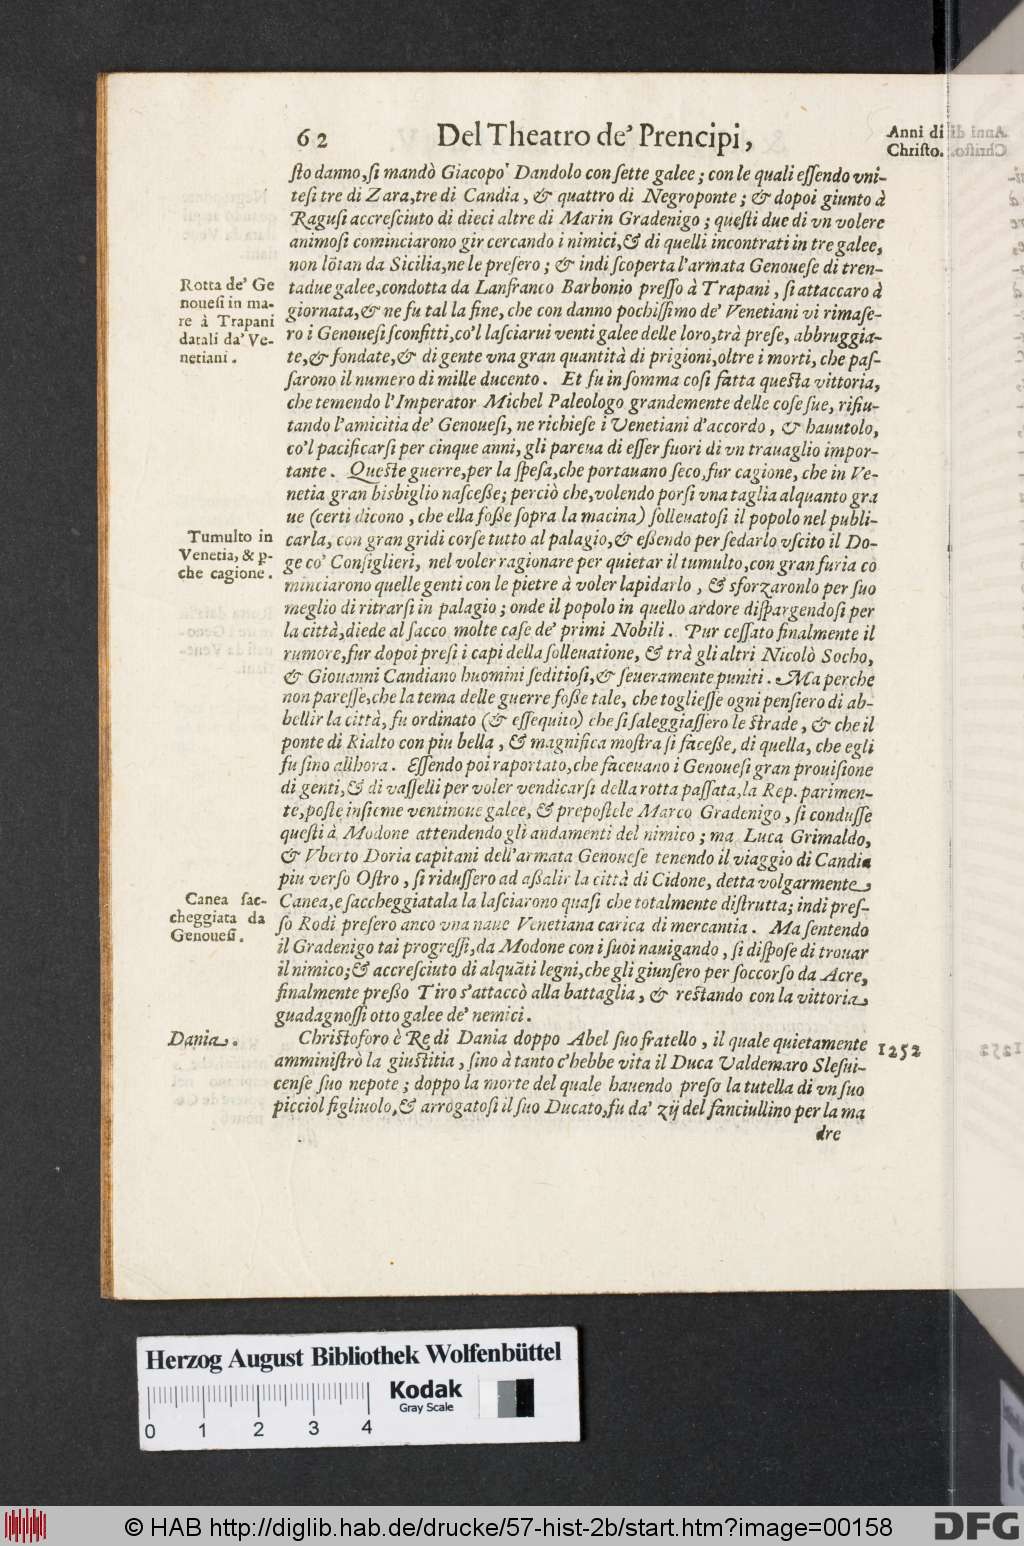 62 Del Theatro de' Prencipi,
Anni di
Christo.
sto danno, si mandò Giacopo Dandolo con sette galee; con le quali essendo vni-
tesi tre di Zara, tre di Candia, & quattro di Negroponte; & dopoi giunto à
Ragusi accresciuto di dieci altre di Marin Gradenigo; questi due di vn volere
animosi cominciarono gir cercando i nimici, & di quelli incontrati in tre galee,
non lõtan da Sicilia, ne le presero; & indi scoperta l'armata Genouese di tren-
Rotta de' Ge
nouesi in ma-
re à Trapani
datali da' Ve-
netiani.
tadue galee, condotta da Lanfranco Barbonio presso à Trapani, si attaccaro à
giornata, & ne fu tal la fine, che con danno pochissimo de' Venetiani vi rimase-
ro i Genouesi sconfitti, co'l lasciarui venti galee delle loro, trà prese, abbruggia-
te, & fondate, & di gente vna gran quantità di prigioni, oltre i morti, che pas-
sarono il numero di mille ducento. Et fu in somma cosi fatta questa vittoria,
che temendo l'Imperator Michel Paleologo grandemente delle cose sue, rifiu-
tando l'amicitia de' Genouesi, ne richiese i Venetiani d'accordo, & hauutolo,
co'l pacificarsi per cinque anni, gli pareua di esser fuori di vn trauaglio impor-
tante. Queste guerre, per la spesa, che portauano seco, fur cagione, che in Ve-
netia gran bisbiglio nascesse; perciò che, volendo porsi vna taglia alquanto gra
ue (certi dicono, che ella fosse sopra la macina) solleuatosi il popolo nel publi-
Tumulto in
Venetia, & p-
che cagione.
carla, con gran gridi corse tutto al palagio, & essendo per sedarlo vscito il Do-
ge co' Consiglieri, nel voler ragionare per quietar il tumulto, con gran furia cò
minciarono quelle genti con le pietre à voler lapidarlo, & sforzaronlo per suo
meglio di ritrarsi in palagio; onde il popolo in quello ardore dispargendosi per
la città, diede al sacco molte case de' primi Nobili. Pur cessato finalmente il
rumore, fur dopoi presi i capi della solleuatione, & trà gli altri Nicolò Socho,
& Giouanni Candiano huomini seditiosi, & seueramente puniti. Ma perche
non paresse, che la tema delle guerre fosse tale, che togliesse ogni pensiero di ab-
bellir la città, fu ordinato (& essequito) che si saleggiassero le strade, & che il
ponte di Rialto con piu bella, & magnifica mostra si facesse, di quella, che egli
fu sino allhora. Essendo poi raportato, che faceuano i Genouesi gran prouisione
di genti, & di vasselli per voler vendicarsi della rotta passata, la Rep. parimen-
te, poste insieme ventinoue galee, & prepostele Marco Gradenigo, si condusse
questi à Modone attendendo gli andamenti del nimico; ma Luca Grimaldo,
& Vberto Doria capitani dell'armata Genouese tenendo il viaggio di Candia
piu verso Ostro, si ridussero ad assalir la città di Cidone, detta volgarmente
Canea sac-
cheggiata da
Genouesi.
Canea, e saccheggiatala la lasciarono quasi che totalmente distrutta; indi pres-
so Rodi presero anco vna naue Venetiana carica di mercantia. Ma sentendo
il Gradenigo tai progressi, da Modone con i suoi nauigando, si dispose di trouar
il nimico; & accresciuto di alquãti legni, che gli giunsero per soccorso da Acre,
finalmente presso Tiro s'attaccò alla battaglia, & restando con la vittoria,
guadagnossi otto galee de' nemici.
Dania.
Christoforo è Re di Dania doppo Abel suo fratello, il quale quietamente
1252
amministrò la giustitia, sino à tanto c'hebbe vita il Duca Valdemaro Slesui-
cense suo nepote; doppo la morte del quale hauendo preso la tutella di vn suo
picciol figliuolo, & arrogatosi il suo Ducato, fu da' zij del fanciullino per la ma
dre
Herzog August Bibliothek Wolfenbüttel
Kodak
Gray Scale
0 1 2 3 4
© HAB http://diglib.hab.de/drucke/57-hist-2b/start.htm?image=00158
DFG